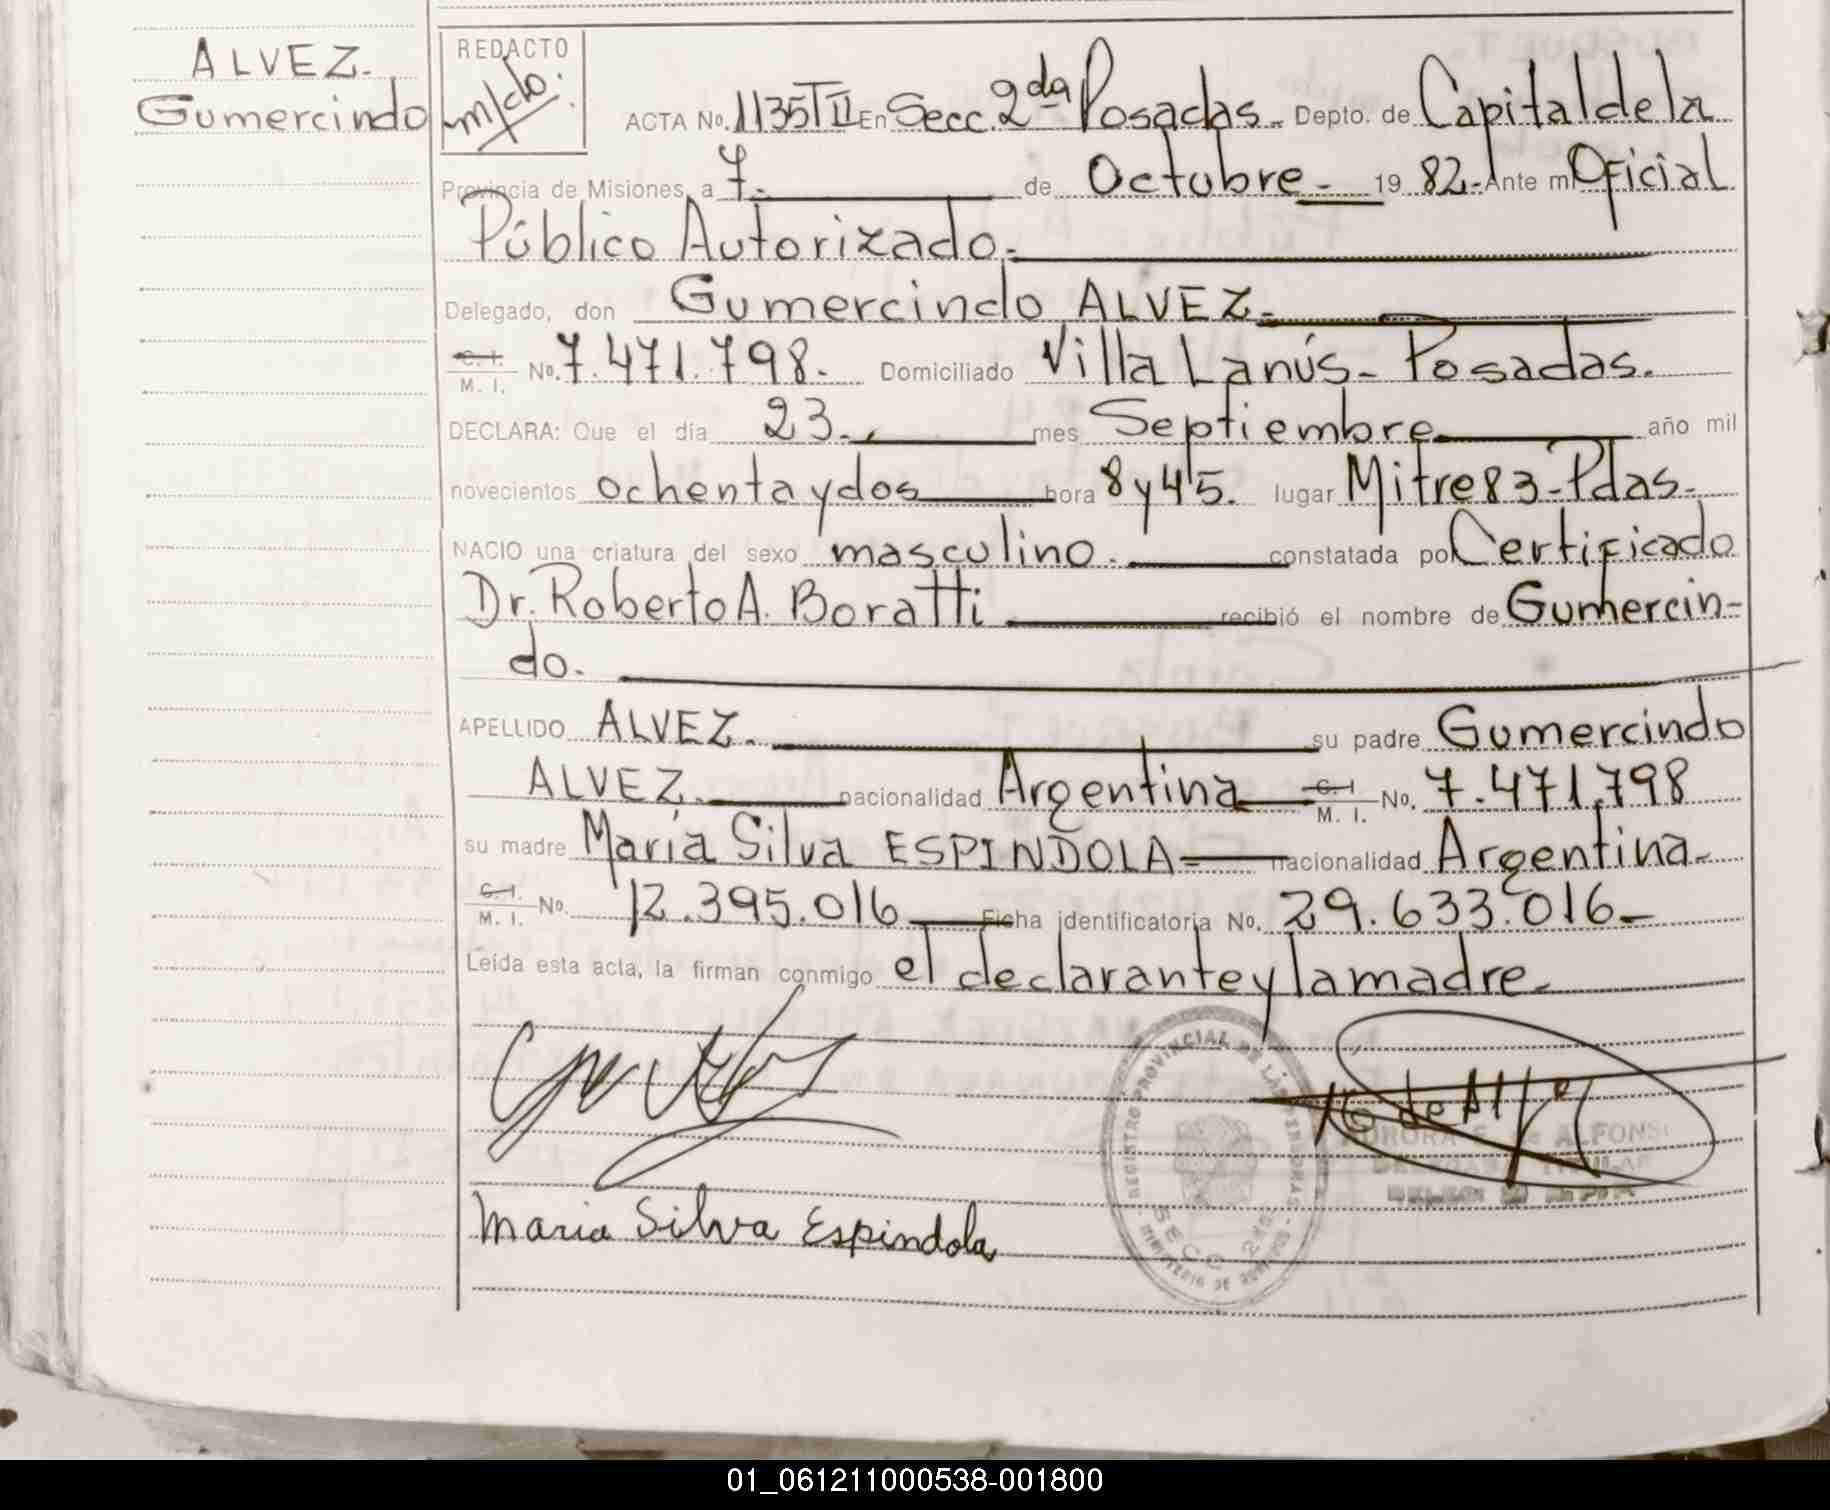 ALVEZ.
Gumercindo
REDACTO
m/do.
ACTA No. 1135 T II En Secc. 2da Posadas. Depto. de Capital de la
Provincia de Misiones, a 7. de Octubre - 19 82. Ante mí Oficial
Público Autorizado.
Delegado, don Gumercindo ALVEZ.
C. I.
M. I. No. 7.471.798. Domiciliado Villa Lanús - Posadas.
DECLARA: Que el día 23. mes Septiembre año mil
novecientos ochenta y dos hora 8 y 45. lugar Mitre 83 - Pdas.
NACIO una criatura del sexo masculino. constatada por Certificado
Dr. Roberto A. Boratti recibió el nombre de Gumercin-
do.
APELLIDO ALVEZ. su padre Gumercindo
ALVEZ. nacionalidad Argentina C. I.
M. I. No. 7.471.798
su madre María Silva ESPINDOLA nacionalidad Argentina
C. I.
M. I. No. 12.395.016 Ficha identificatoria No. 29.633.016
Leída esta acta, la firman conmigo el declarante y la madre.
Maria Silva Espindola
REGISTRO PROVINCIAL DE LAS PERSONAS
SECC 2da
MINISTERIO DE GOBIERNO
AURORA ALFONSO
DELEGADA TITULAR
01_061211000538-001800